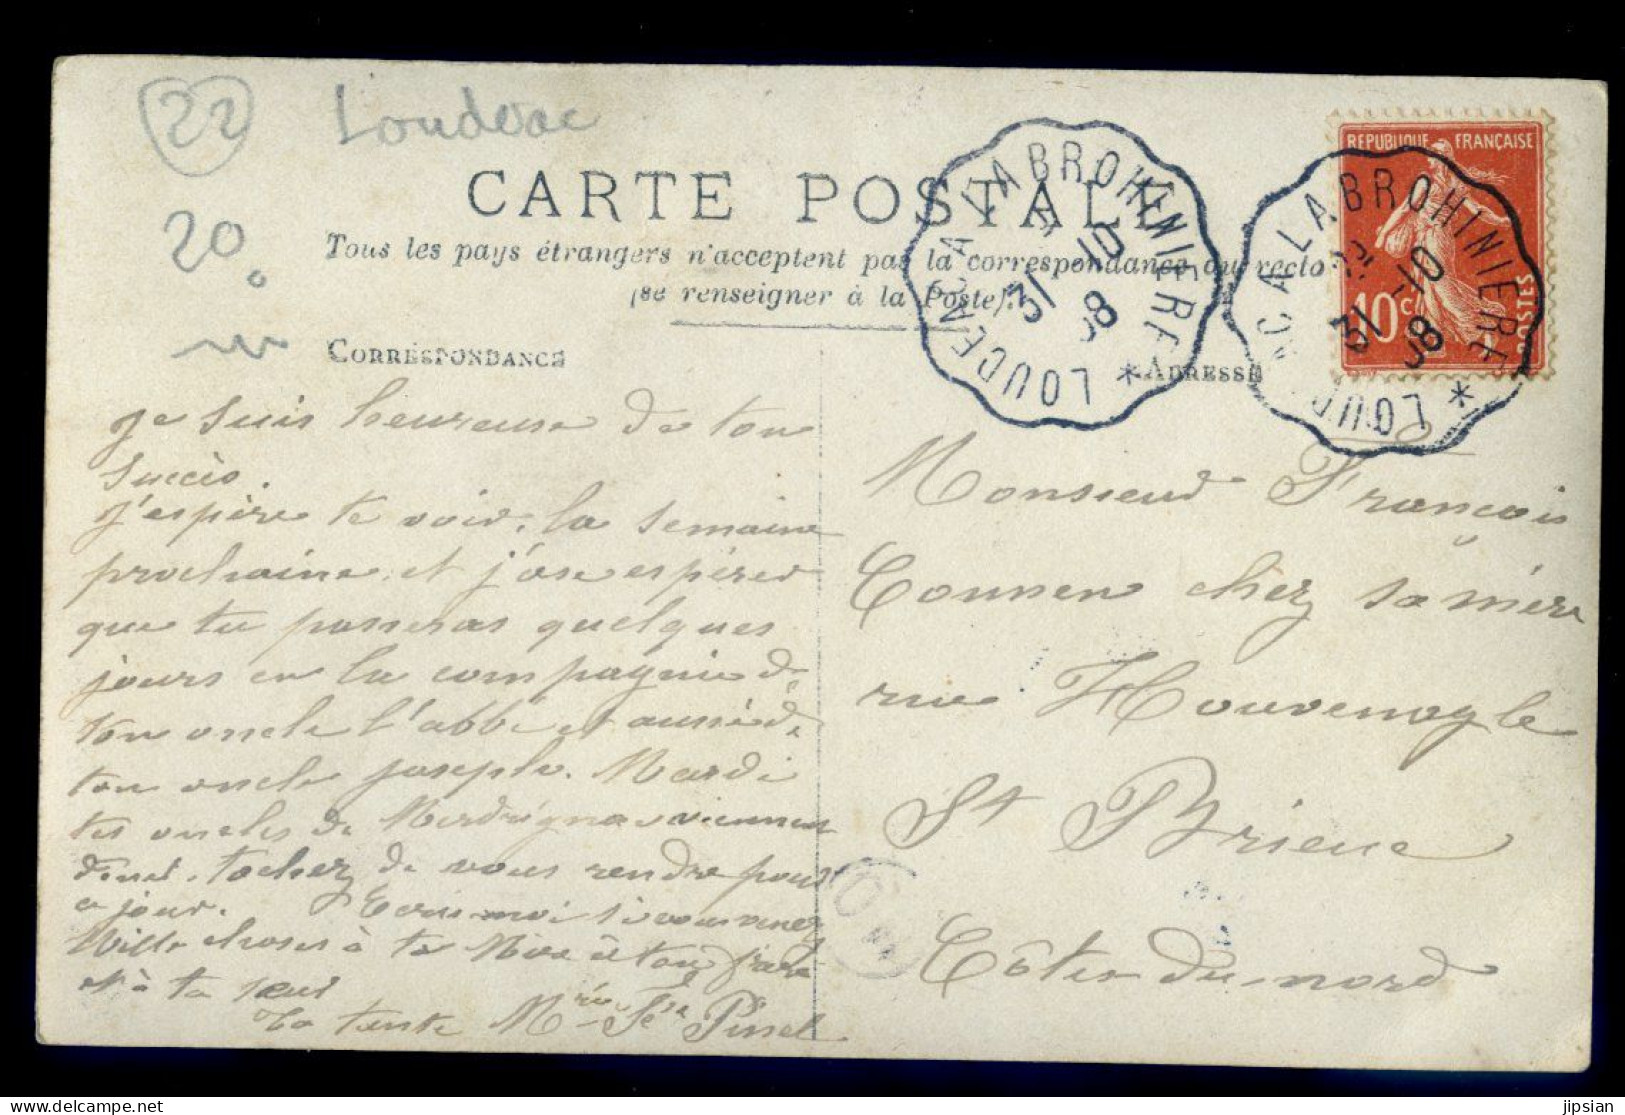 22 Loudeac
20
CARTE POSTALE
Tous les pays étrangers n'acceptent pas la correspondance au recto
(se renseigner à la Poste).
CORRESPONDANCE
ADRESSE
REPUBLIQUE FRANÇAISE
10c
POSTES
LOUDEAC A LABROHINIERE *
31-10
08
LOUDEAC A LABROHINIERE *
31-10
08
Je suis heureuse de ton
succès.
J'espère te voir, la semaine
prochaine, et j'ose espérer
que tu passeras quelques
jours en la compagnie de
ton oncle l'abbé et aussi de
ton oncle joseph. Mardi
tes oncles de Merdrignac viennent
dîner. tachez de vous rendre pour
ce jour. Ecris-moi si vous venez
Mille choses à ta Mère à ton frère
et à ta sœur
Ta tante M Pinel
Monsieur François
Connen chez sa mère
rue Houvenagle
St Brieuc
Côtes-du-nord
jipsian